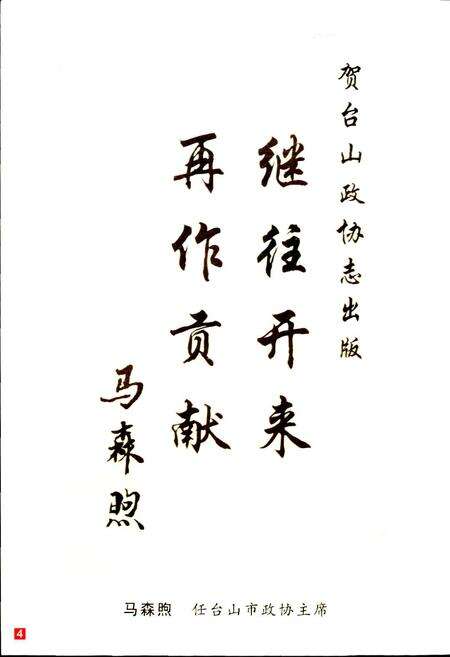 贺台山政协志出版
继往开来
再作贡献
马森煦
马森煦 任台山市政协主席
4